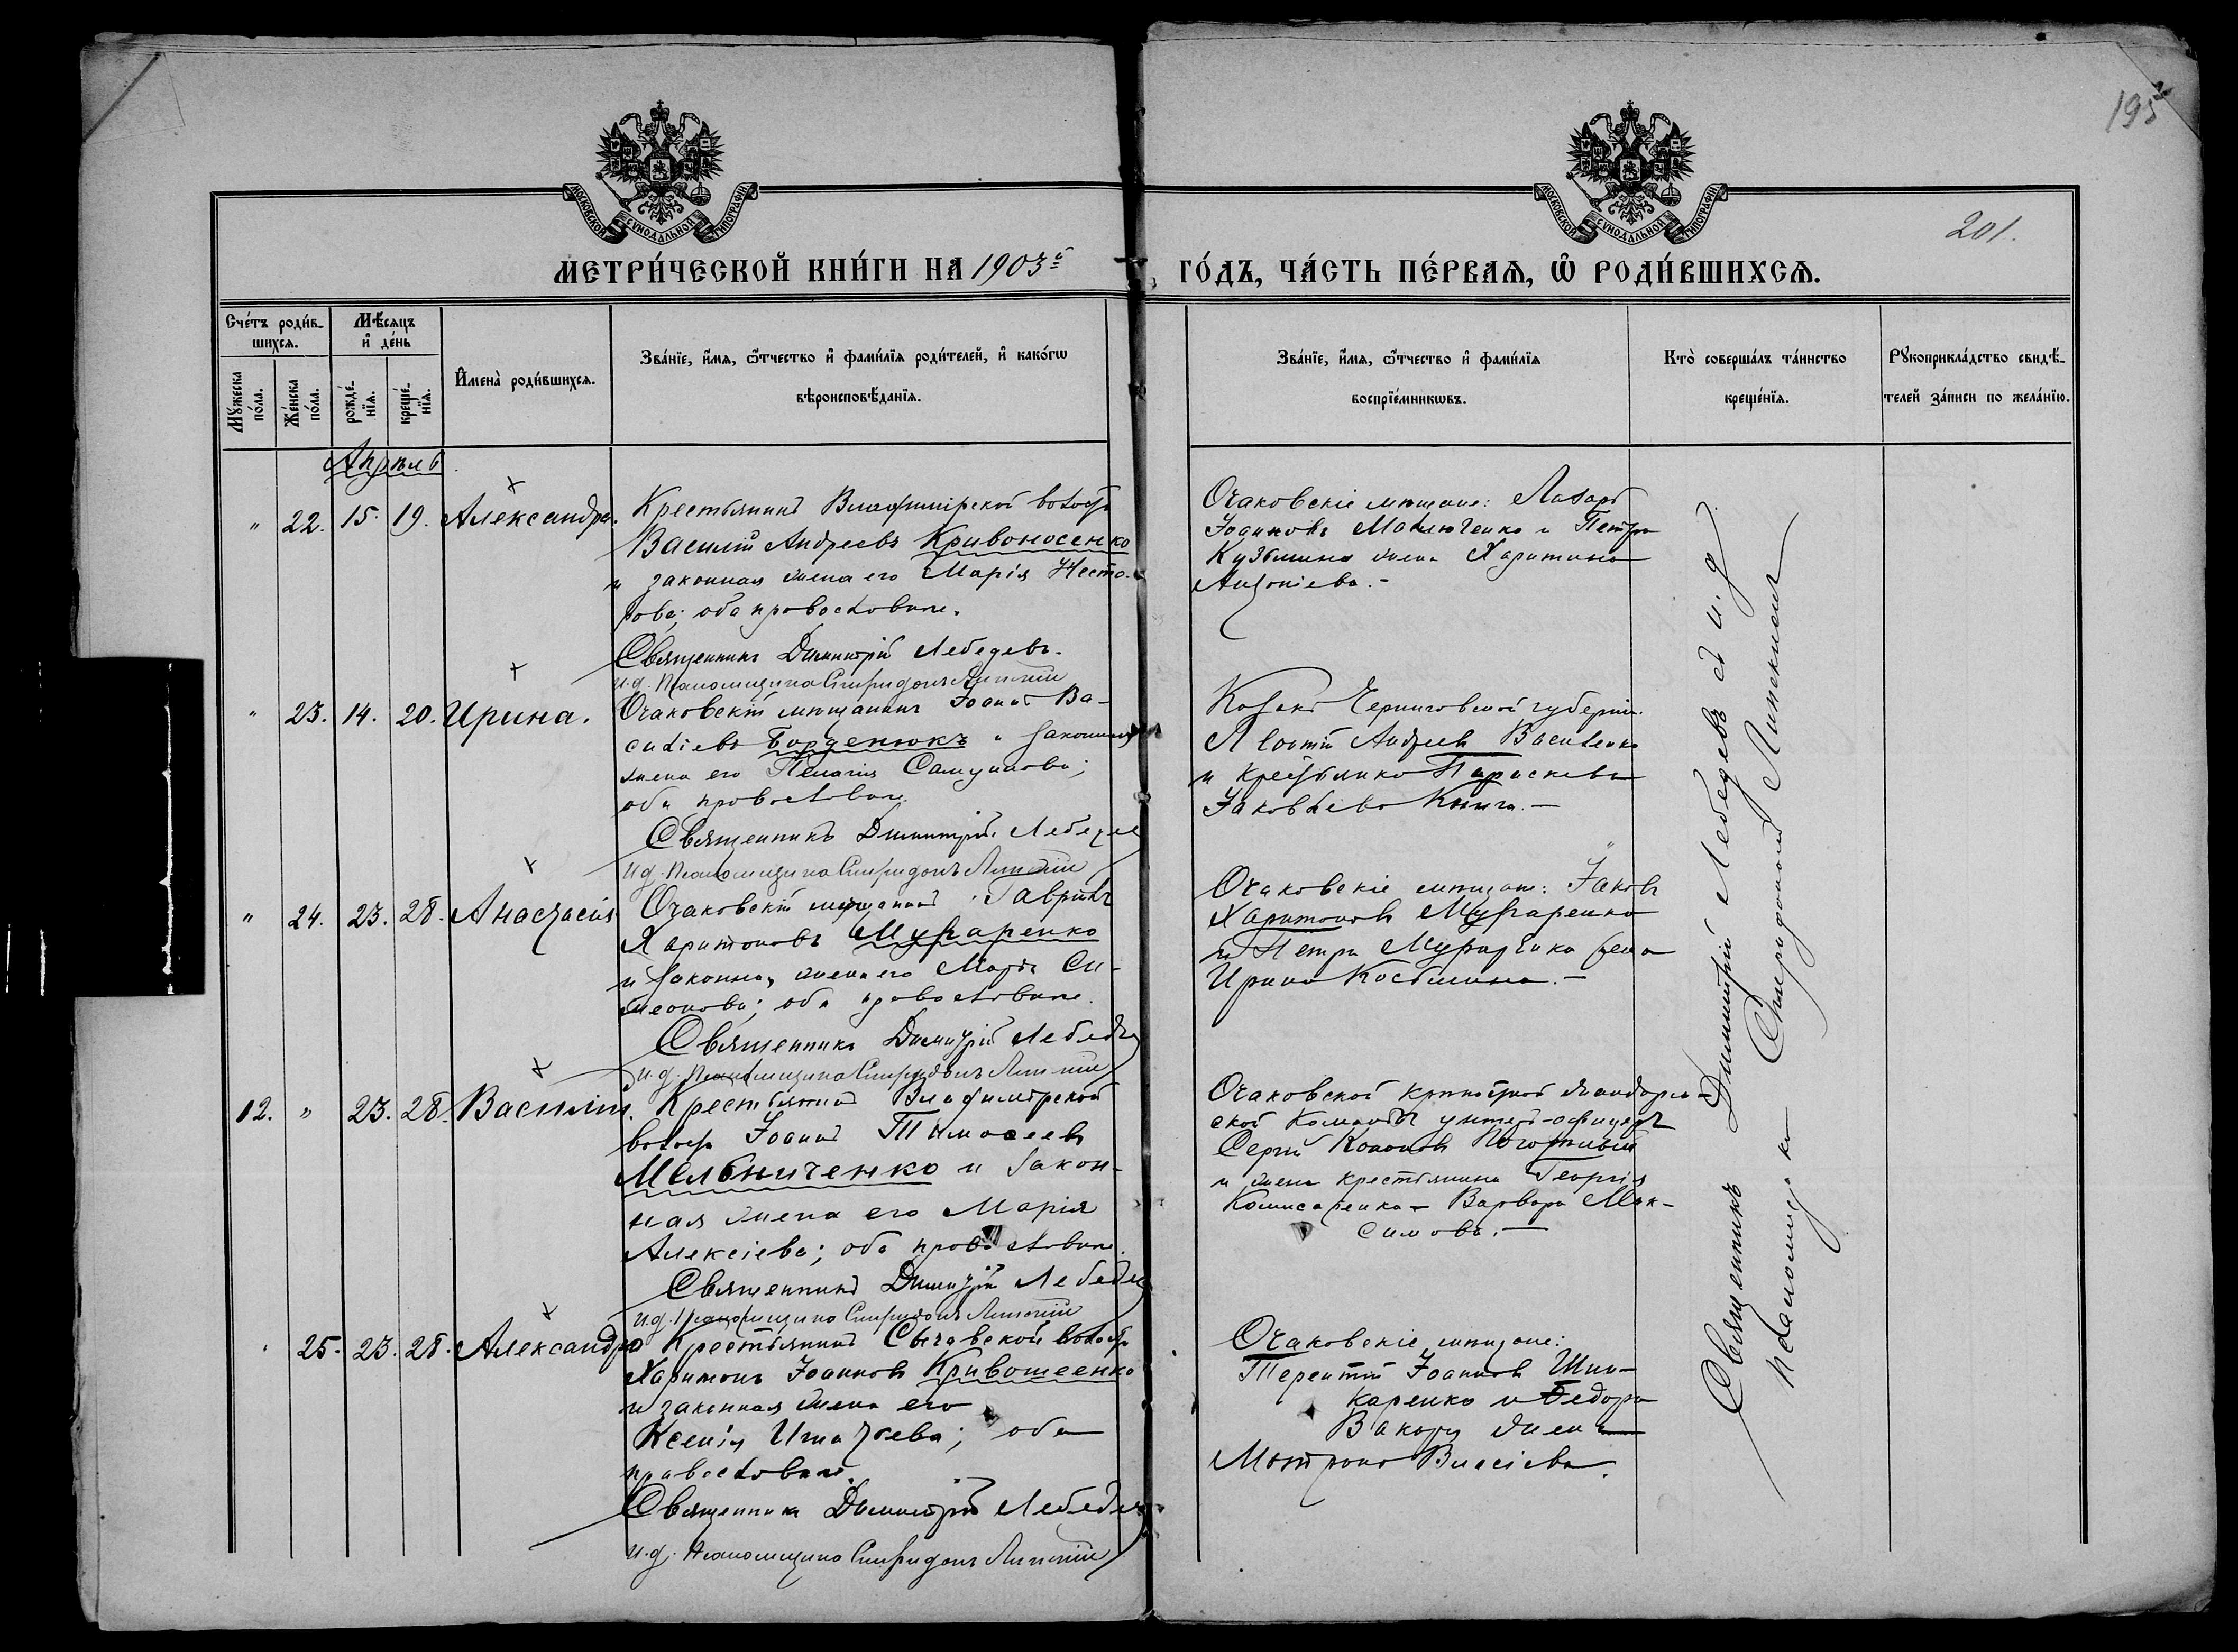 195
201.
МОСКОВСКОЙ СѴНОДАЛЬНОЙ ТИПОГРАФІИ
МОСКОВСКОЙ СѴНОДАЛЬНОЙ ТИПОГРАФІИ
МЕТРИ́ЧЕСКОЙ КНИ́ГИ НА 1903й ГО́ДЪ, ЧА́СТЬ ПЕ́РВАѦ, Ѡ РОДИ́ВШИХСѦ.
Сче́тъ роди́в-
шихсѧ.
Мꙋ́жеска по́ла.
Же́нска по́ла.
Мѣ́сѧцъ
и҆ де́нь
рожде́-
нїѧ.
креще́-
нїѧ.
И҆мена̀ роди́вшихсѧ.
Зва́нїе, и҆́мѧ, ѻ҆́тчество и҆ фами́лїѧ роди́телей, и҆ како́гѡ
вѣроисповѣ́данїѧ.
Зва́нїе, и҆́мѧ, ѻ҆́тчество и҆ фами́лїѧ
воспрїе́мникѡвъ.
Кто̀ соверша́лъ та́инство
креще́нїѧ.
Рꙋкоприкла́дство свидѣ́-
телей за́писи по жела́нїю.
Апрѣль
" 22. 15. 19. Александра.
Крестьянинъ Владимірской волости
Василій Андреевъ Кривоносенко
и законная жена его Марія Несто-
рова; оба православные.
Священникъ Димитрій Лебедевъ.
и.д. Псаломщика Спиридонъ
Очаковскіе мѣщане: Лазарь
Іоанновъ и Петра
Кузьмина жена Харитина
Антоніева.-
" 23. 14. 20. Ирина.
Очаковскій мѣщанинъ Іоаннъ Ва-
силіевъ Борденюкъ и законная
жена его Пелагія Самуилова;
оба православные.
Священникъ Димитрій Лебедевъ
и.д. Псаломщика Спиридонъ
Козакъ Черниговской губерніи
Андреевъ Василенко
и крестьянка Параскева
Іаковлева Книга.-
" 24. 23. 28. Анастасія
Очаковскій мѣщанинъ Гавріилъ
Харитоновъ
и законная жена его Марія Си-
меонова; оба православные.
Священникъ Димитрій Лебедевъ
и.д. Псаломщика Спиридонъ
Очаковскіе мѣщане: Іаковъ
Харитоновъ
и Петра жена
Ирина Косьмина.-
12. " 23. 28. Василій.
Крестьянинъ Владимірской
волости Іоаннъ Тимоѳеевъ
Мельниченко и закон-
ная жена его Марія
Алексіева; оба православные.
Священникъ Димитрій Лебедевъ
и.д. Псаломщика Спиридонъ
Очаковской крѣпостной жандарм-
ской команды унтеръ-офицеръ
Сергій Кононовъ
и жена крестьянина Георгія
Комисаренка - Варвара Мак-
симова.-
" 25. 23. 28. Александра
Крестьянинъ Сычавской волости
Харитонъ Іоанновъ Кривошеенко
и законная жена его
Ксенія Игнатьева; оба
православные.
Священникъ Димитрій Лебедевъ
и.д. Псаломщика Спиридонъ
Очаковскіе мѣщане:
Терентій Іоанновъ Шин-
каренко и Ѳедора
жена
Матрона Власіева.
Священникъ Димитрій Лебедевъ съ и.д.
псаломщика Спиридономъ